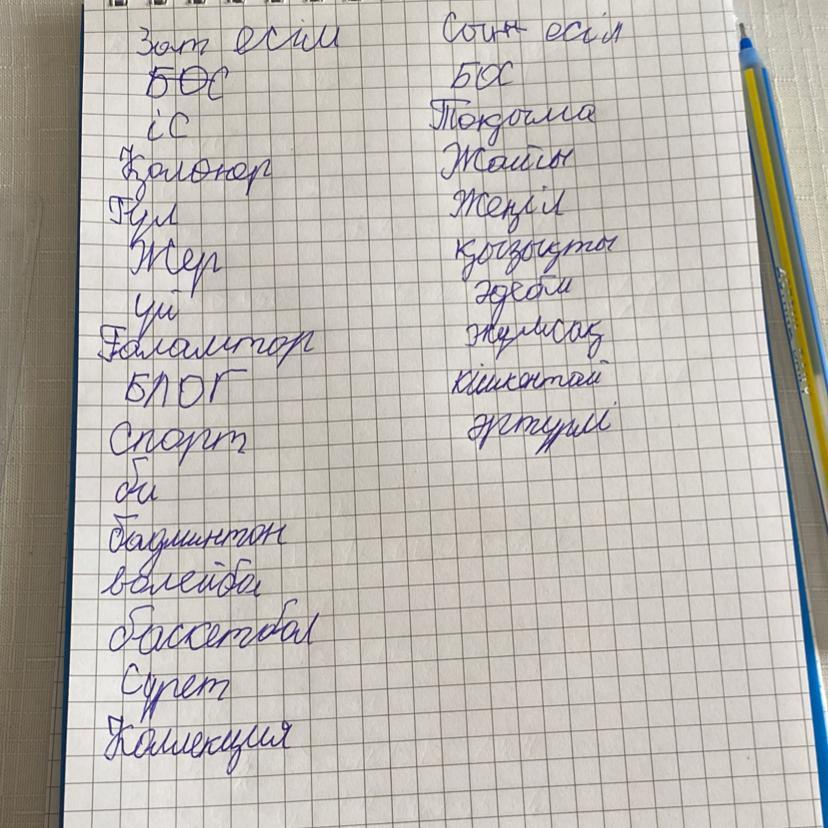 Зат есім
БОС
іС
Қолөнер
Гүл
Жер
үй
Ғаламтор
БЛОГ
Спорт
би
бадминтон
волейбол
баскетбол
Сурет
Коллекция
Сын есім
БОС
Тоқыма
Жайлы
Жеңіл
қызықты
әдеби
жұмсақ
кішкентай
әртүрлі